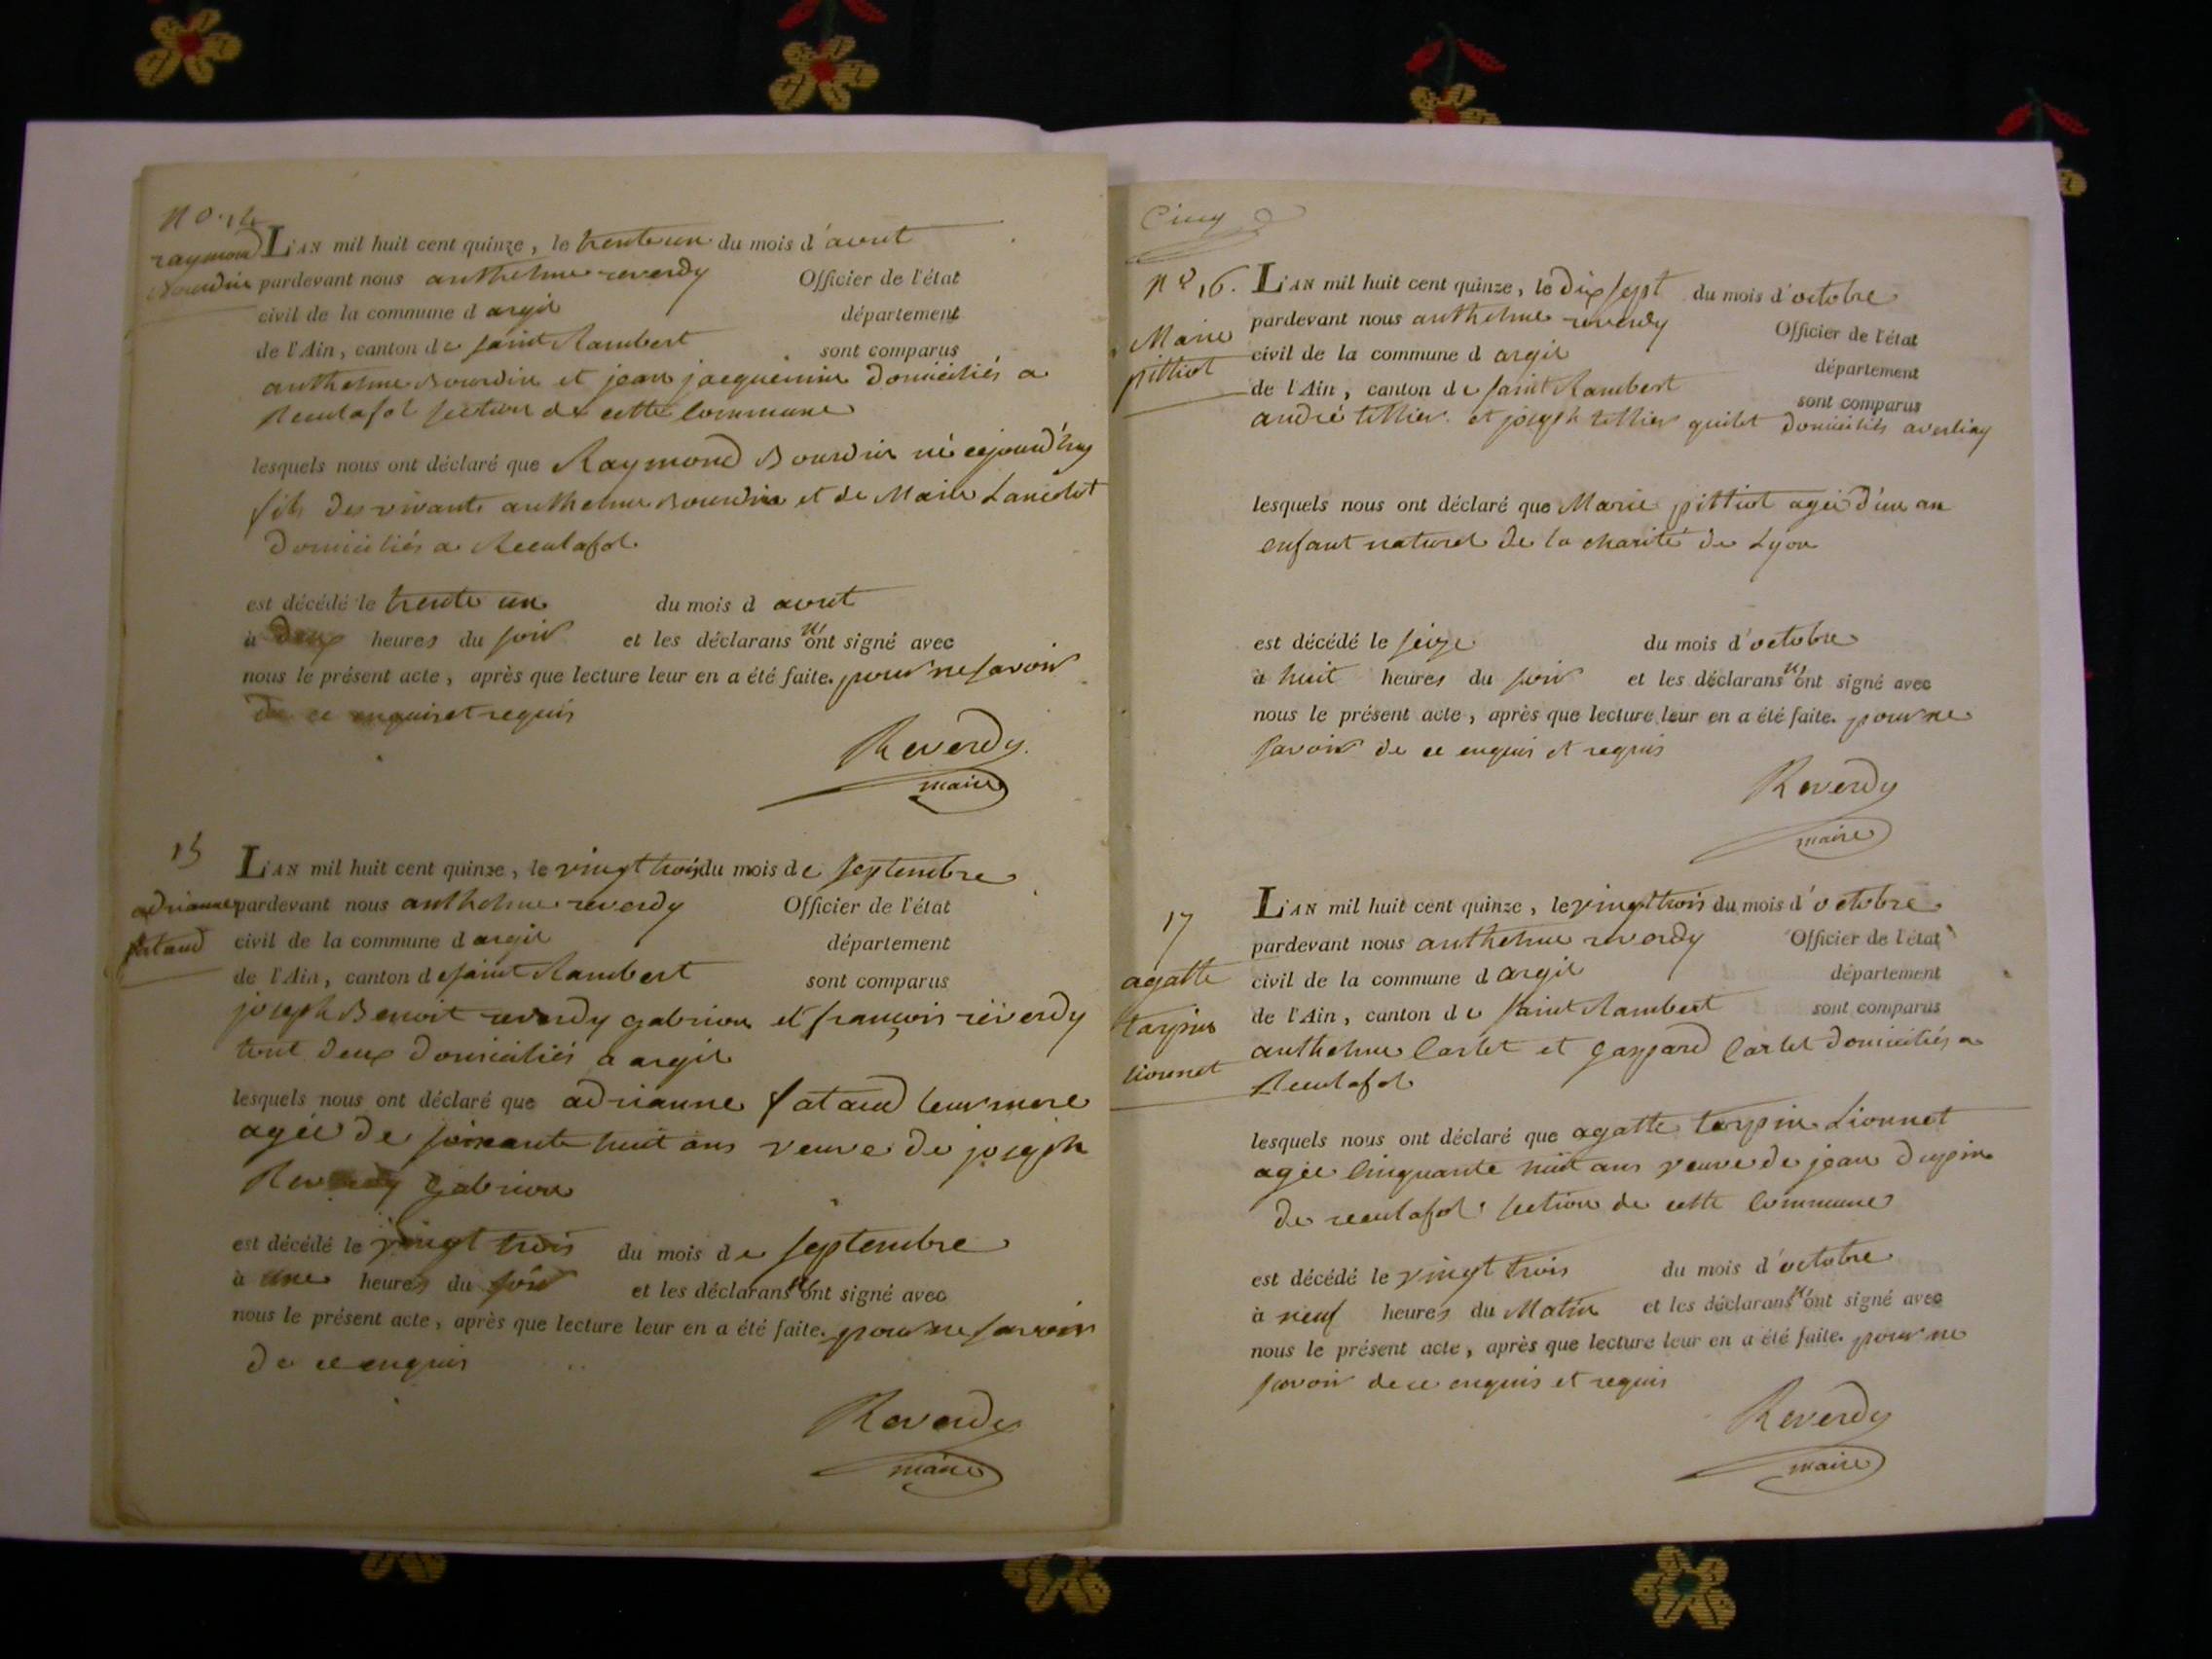 No. 14
raymond
Bourdin
L'AN mil huit cent quinze, le trente un du mois d'aout
pardevant nous anthelme reverdy Officier de l'état
civil de la commune d argis département
de l'Ain, canton de saint Rambert sont comparus
anthelme Bourdin et jean jacquemin domiciliés a
Reculafol section de cette Commune
lesquels nous ont déclaré que Raymond Bourdin né cejourd'huy
fils des vivants anthelme Bourdin et de Marie Lancelot
Domiciliés a Reculafol
est décédé le trente un du mois d aout
à deux heures du soir et les déclarans n'ont signé avec
nous le présent acte, après que lecture leur en a été faite. pour ne savoir
de ce enquis et requis
Reverdy
maire
15
adrianne
fataud
L'AN mil huit cent quinze, le vingt trois du mois de septembre
pardevant nous anthelme reverdy Officier de l'état
civil de la commune d argis département
de l'Ain, canton de saint Rambert sont comparus
joseph Benoit reverdy gabrion et françois reverdy
tout deux domiciliés a argis
lesquels nous ont déclaré que adrianne fataud leur mere
agée de soixante huit ans veuve de joseph
Reverdy gabrion
est décédé le vingt trois du mois de septembre
à une heures du soir et les déclarans n'ont signé avec
nous le présent acte, après que lecture leur en a été faite. pour ne savoir
de ce enquis
Reverdy
maire
Cinq
No 16.
Marie
pittiot
L'AN mil huit cent quinze, le dix sept du mois d'octobre
pardevant nous anthelme reverdy Officier de l'état
civil de la commune d argis département
de l'Ain, canton de saint Rambert sont comparus
andré tettier et joseph tettier quilet domiciliés
lesquels nous ont déclaré que Marie pittiot agée d'un an
enfant naturel de la charité de Lyon
est décédé le seize du mois d'octobre
à huit heures du soir et les déclarans n'ont signé avec
nous le présent acte, après que lecture leur en a été faite. pour ne
savoir de ce enquis et requis
Reverdy
maire
17
agatte
tarpin
Lionnet
L'AN mil huit cent quinze, le vingt trois du mois d'octobre
pardevant nous anthelme reverdy Officier de l'état
civil de la commune d argis département
de l'Ain, canton de saint Rambert sont comparus
anthelme Carlet et gaspard Carlet domiciliés a
Reculafol
lesquels nous ont déclaré que agatte tarpin Lionnet
agée Cinquante huit ans veuve de jean dupin
de reculafol section de cette Commune
est décédé le vingt trois du mois d'octobre
à neuf heures du Matin et les déclarans n'ont signé avec
nous le présent acte, après que lecture leur en a été faite. pour ne
savoir de ce enquis et requis
Reverdy
maire